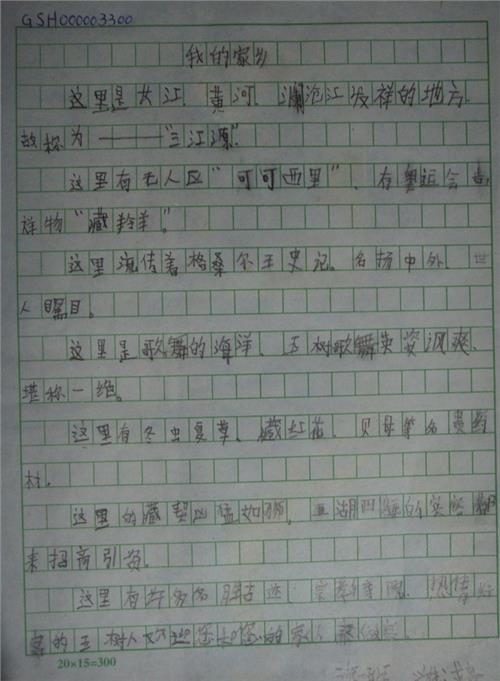 GSH000003300
我的家乡
这里是大江、黄河、澜沧江发祥的地方,
故称为———"三江源".
这里有无人区"可可西里"、有奥运会吉
祥物"藏羚羊"。
这里流传着格桑尔王史记。名扬中外、世
人瞩目。
这里是歌舞的海洋、玉树歌舞英姿飒爽、
堪称一绝。
这里有冬虫夏草、藏红花、贝母等名贵药
材。
这里的藏獒凶猛如狮。五湖四海的
来招商引资。
这里有许多名胜古迹 热情好
客的玉树人欢迎您和您的家人
20×15=300